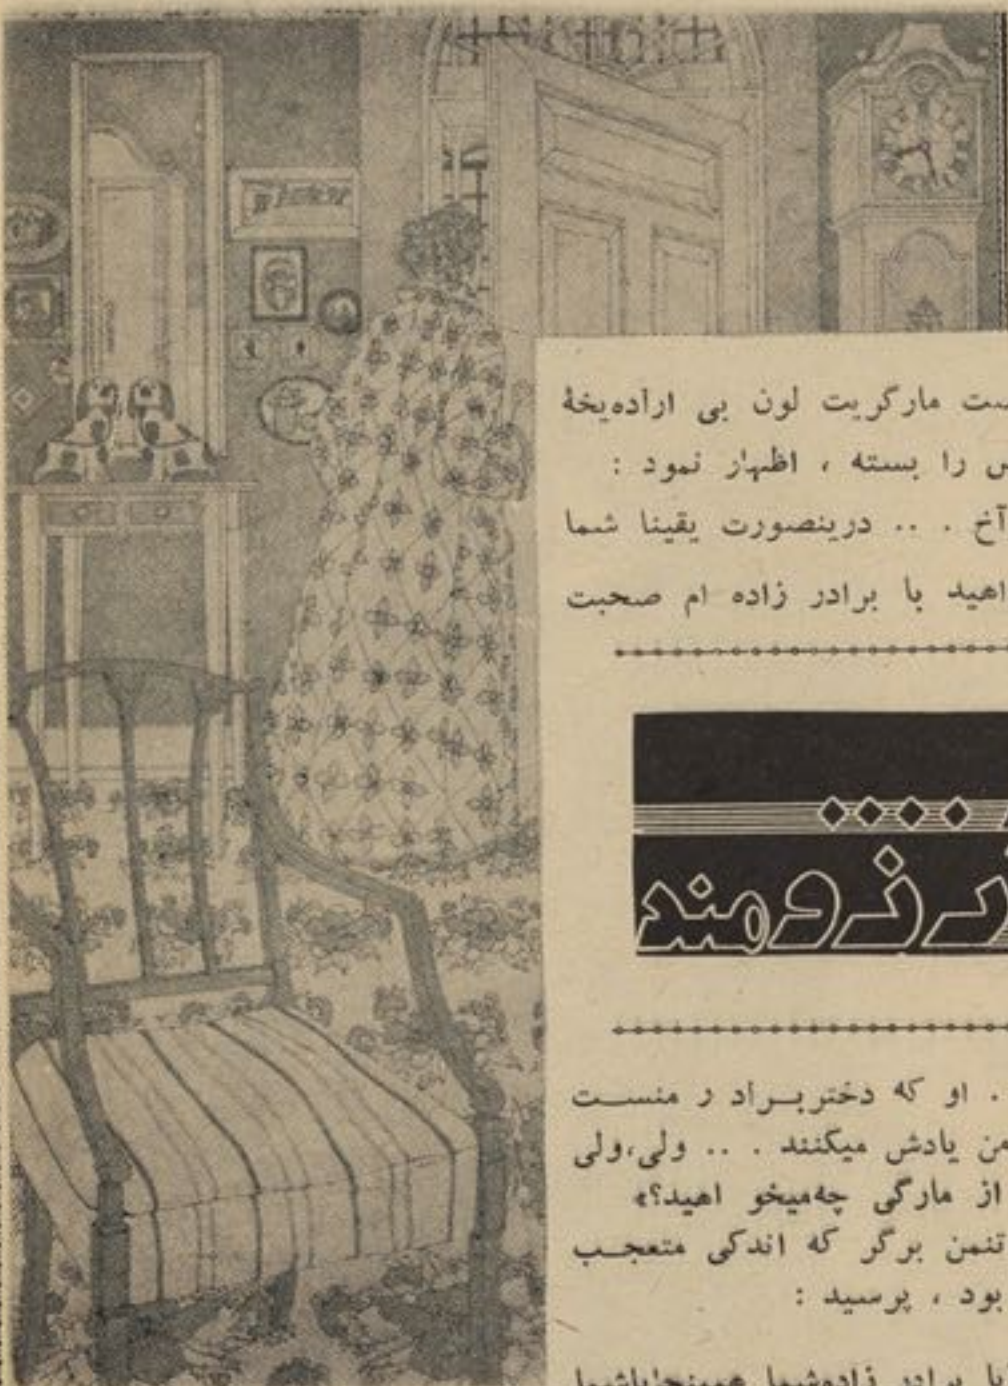 ست مارگریت لون بی اراده‌یخهٔ
س را بسته ، اظهار نمود :
آخ . .. درینصورت یقینا شما
اهید با برادر زاده ام صحبت
رزومند
. او که دختربـراد ر منسـت
من یادش میکنند . .. ولی،ولی
از مارگی چه‌میخو اهید؟»
تنمن برگر که اندکی متعجـب
بود ، پرسید :
با برادر زاده‌شما